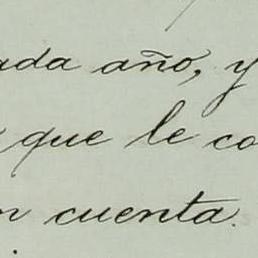 ada año, y
que le co
n cuenta.